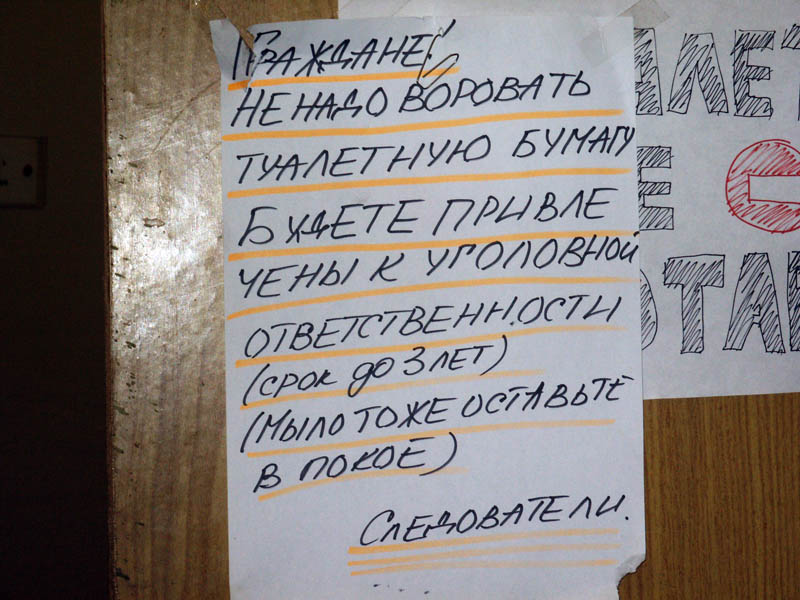 Граждане!
не надо воровать
туалетную бумагу
Будете привле
чены к уголовной
ответственности
(срок до 3 лет)
(Мыло тоже оставьте
в покое)
Следователи.